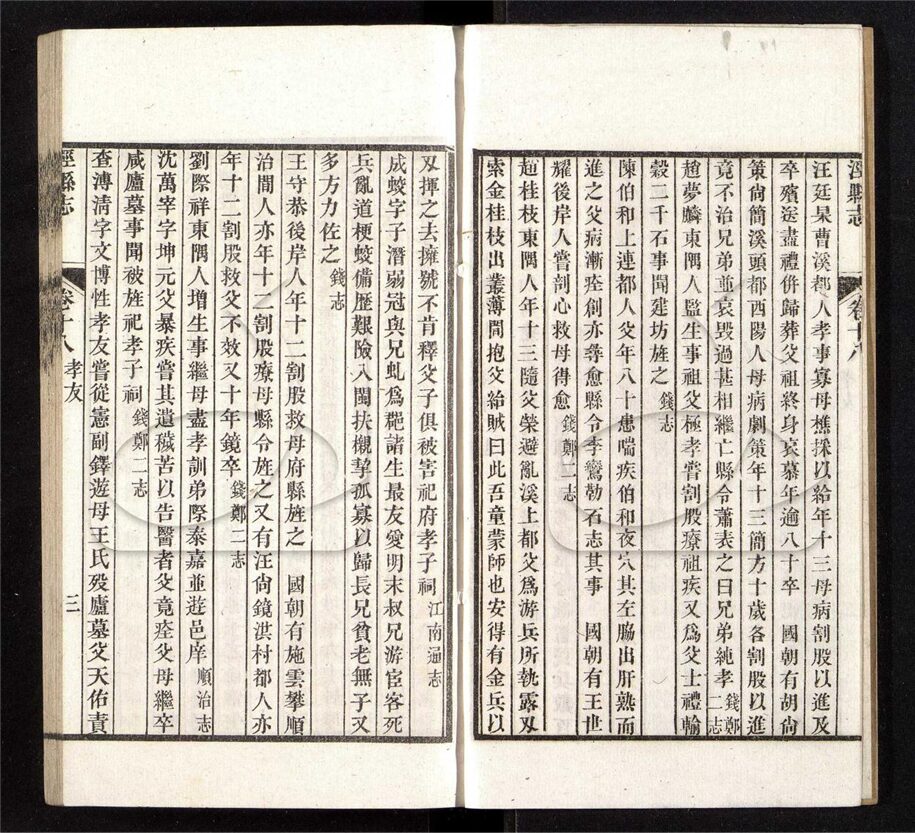 涇縣志
卷十八
汪廷杲曹溪都人孝事寡母樵採以給年十三母病割股以進及
卒殯塟盡禮併歸葬父祖終身哀慕年逾八十卒　國朝有胡尙
策尙簡溪頭都西陽人母病劇策年十三簡方十歲各割股以進
竟不治兄弟並哀毀過甚相繼亡縣令蕭表之曰兄弟純孝錢鄭二志
趙夢麟東隅人監生事祖父極孝嘗割股療祖疾又爲父士禮輸
穀二千石事聞建坊旌之錢志
陳伯和上連都人父年八十患喘疾伯和夜穴其左脇出肝熟而
進之父病漸痊創亦尋愈縣令李鸞勒石志其事　國朝有王世
耀後岸人嘗剖心救母得愈錢鄭二志
趙桂枝東隅人年十三隨父榮避亂溪上都父爲游兵所執露刃
索金桂枝出叢薄間抱父紿賊曰此吾童蒙師也安得有金兵以
刃揮之去擁號不肯釋父子俱被害祀府孝子祠江南通志
成蛟字子潛弱冠與兄虬爲郡諸生最友愛明末叔兄游宦客死
兵亂道梗蛟備歷艱險入閩扶櫬挈孤寡以歸長兄貧老無子又
多方力佐之錢志
王守恭後岸人年十二割股救母府縣旌之　國朝有施雲攀順
治間人亦年十二割股療母縣令旌之又有汪尙鏡淇村都人亦
年十二割股救父不效又十年鏡卒錢鄭二志
劉際祥東隅人增生事繼母盡孝訓弟際泰嘉並遊邑庠順治志
沈萬宰字坤元父暴疾嘗其遺穢苦以告醫者父竟痊父母繼卒
咸廬墓事聞被旌祀孝子祠錢鄭二志
查溥淸字文博性孝友嘗從憲副鐸遊母王氏歿廬墓父天佑責
涇縣志
卷十八
孝友
三